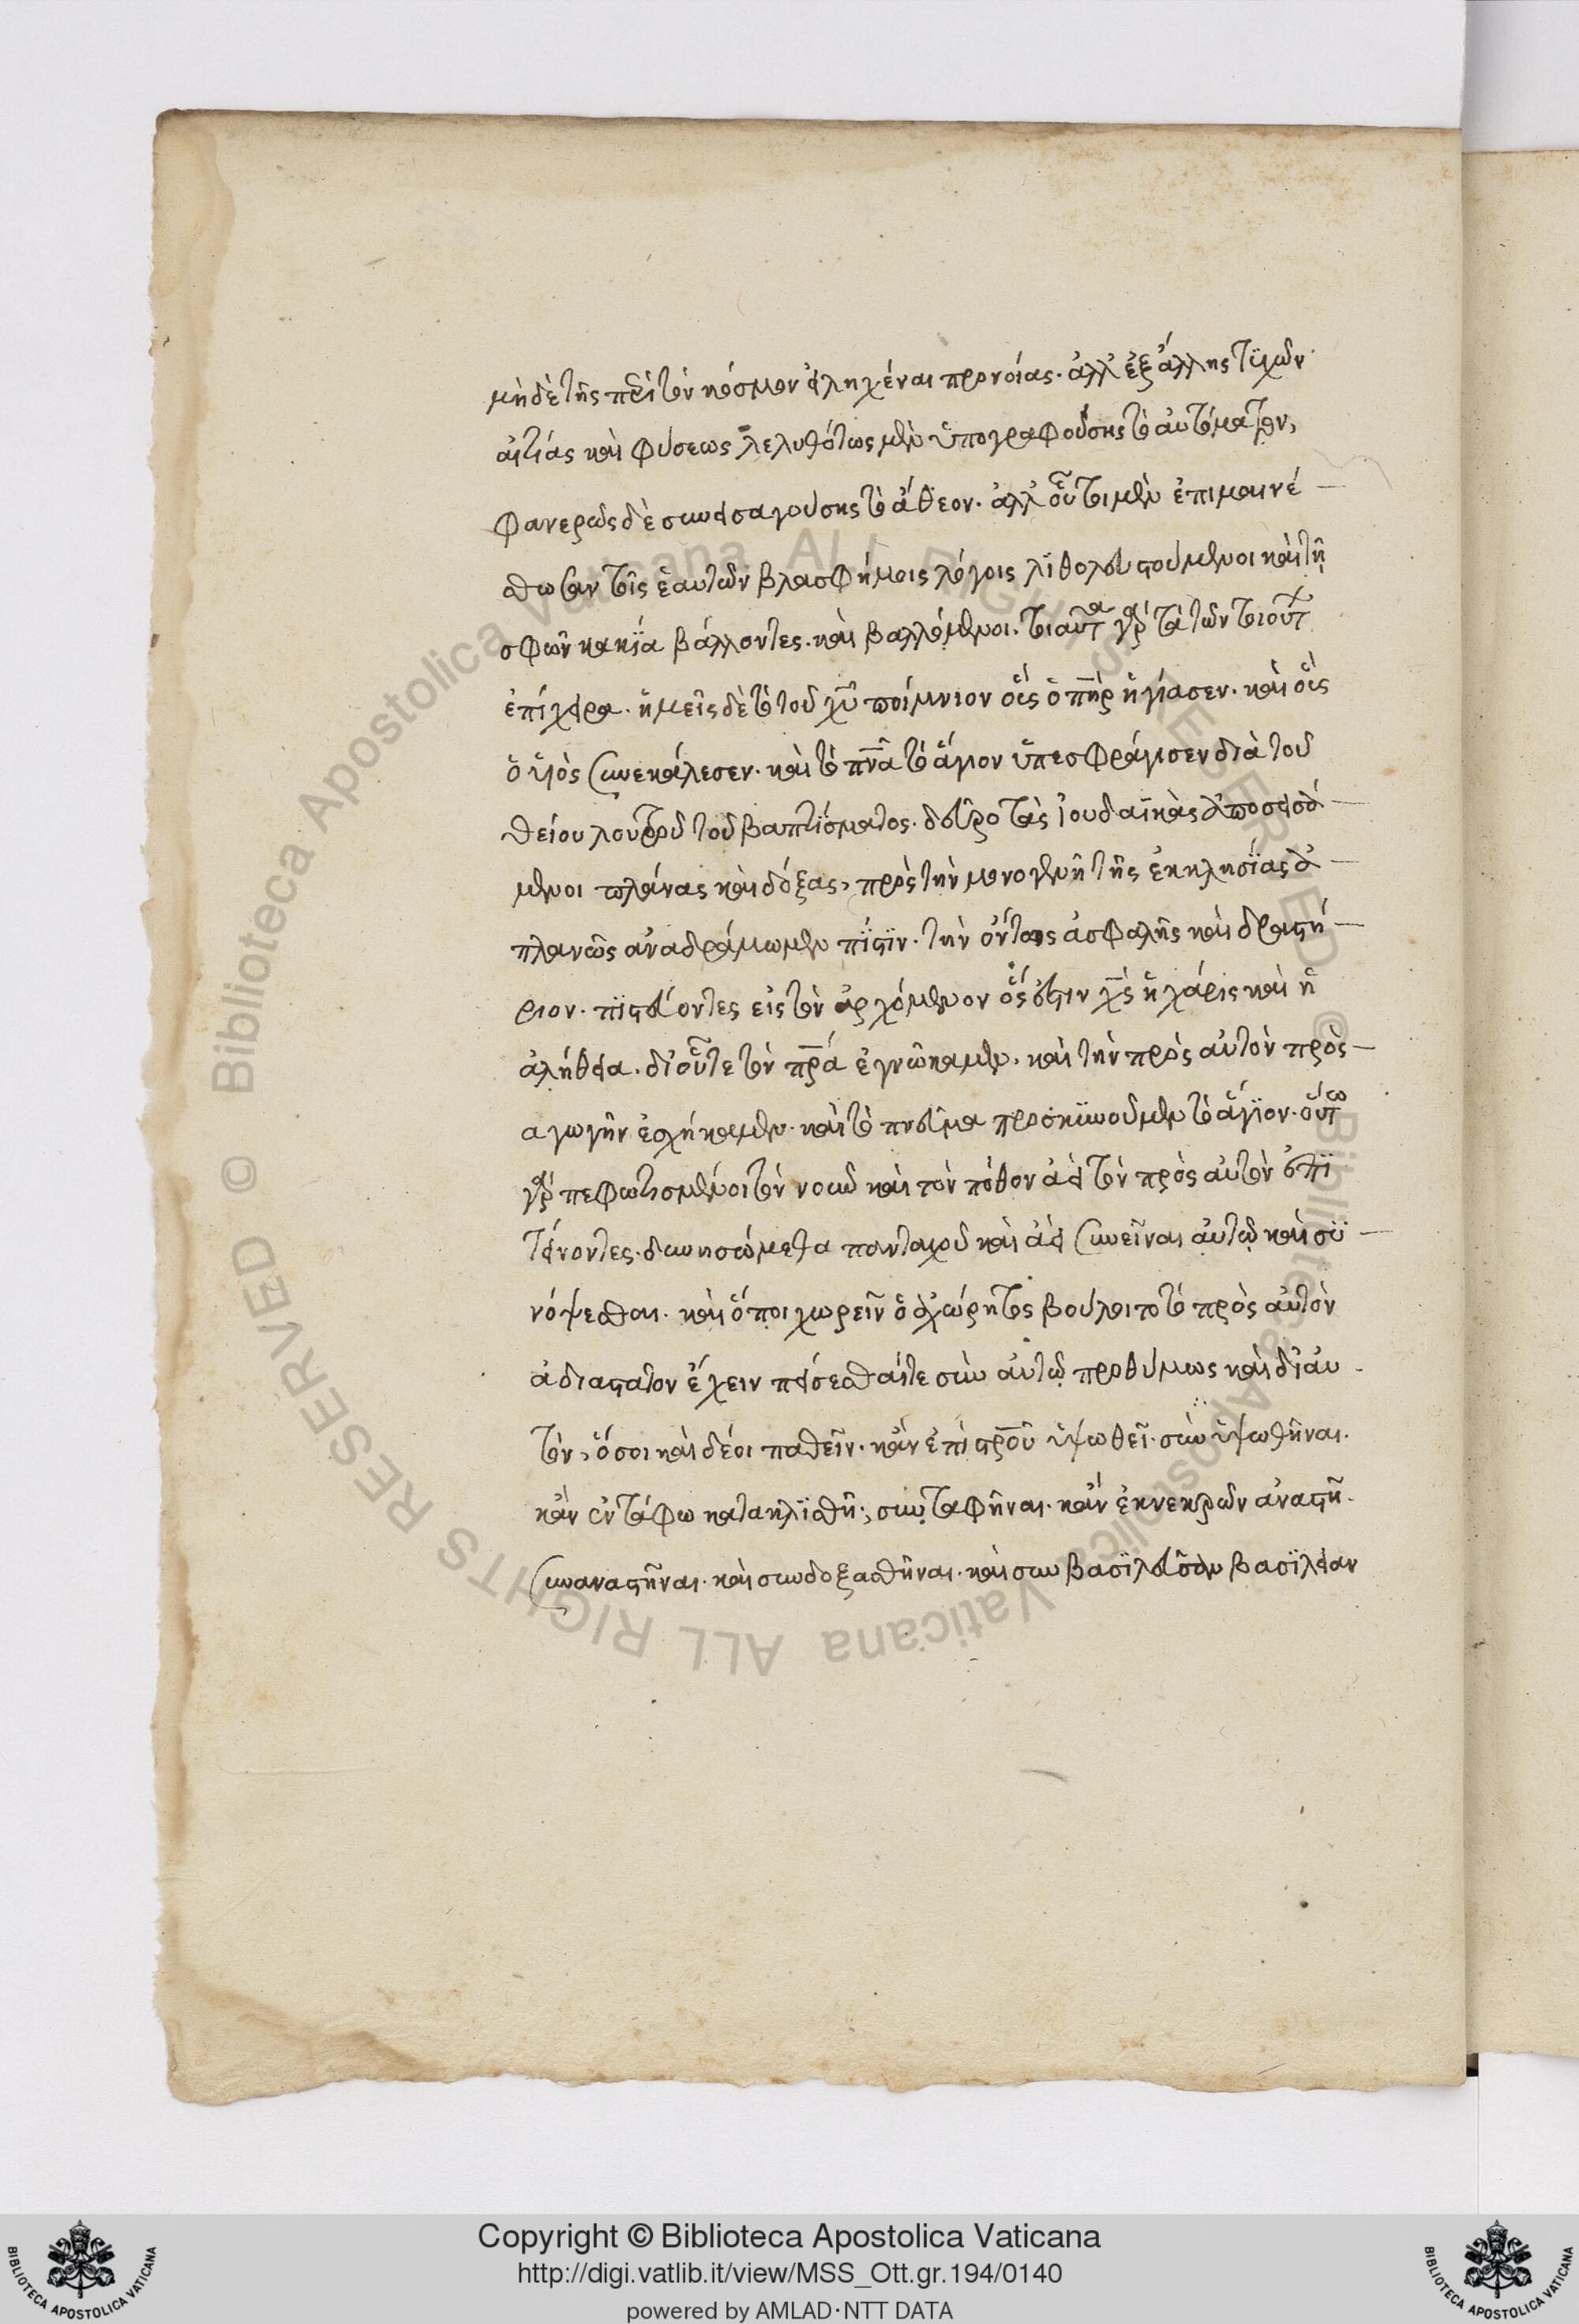 μὴ δὲ τῆς περὶ τὸν κόσμον εἰληχέναι προνοίας. ἀλλ' ἐξ ἄλλης τϊνῶν
αἰτίας καὶ φύσεως λεληθότως μὲν ὑπογραφούσης τὸ αὐτόματον,
φανερῶς δὲ συνεισαγούσης τὸ ἄθεον. ἀλλ' οὗτοι μὲν ἐπιμαινέ
σθωσαν τοῖς ἑαυτῶν βλασφήμοις λόγοις λϊθολευστούμενοι καὶ τῇ
σφῶν κακΐα βάλλοντες. καὶ βαλλόμενοι. τοιαῦτα γὰρ τὰ τῶν τοιούτων
ἐπίχειρα. ἡμεῖς δὲ τὸ τοῦ χυ ποίμνιον οὓς ὁ πηρ ἡγίασεν. καὶ οὓς
ὁ ὑιὸς συνεκάλεσεν. καὶ τὸ πνα τὸ ἅγιον ὑπεσφράγισεν διὰ τοῦ
θείου λουτροῦ τοῦ βαπτΐσματος. δεῦρο τὰς ἰουδαϊκὰς ἀποσεισά
μενοι πλάνας καὶ δόξας, πρὸς τὴν μονογενῆ τῆς ἐκκλησΐας ἀ
πλανῶς αναδράμωμεν πΐστϊν. τὴν ὄντως ἀσφαλῆς καὶ δραστή
ριον. πϊστεύοντες εἰς τὸν ἀρχόμενον ὅς ἐστιν χς ἡ χάρις καὶ ἡ
ἀλήθεια. δι' οὗ τε τὸν πρα ἐγνώκαμεν. καὶ τὴν πρὸς αὐτὸν πρὸς
αγωγὴν ἐσχήκαμεν. καὶ τὸ πνεῦμα προσκϋνοῦμεν τὸ ἅγϊον. οὕτω
γὰρ πεφωτισμένοι τὸν νοῦν καὶ τὸν πόθον ἀεὶ τὸν πρὸς αὐτὸν ἐπϊ
τείνοντες. δυνησώμεθα πανταχοῦ καὶ ἀεὶ συνεῖναι αὐτῷ καὶ σϋ
νόψεσθαι. καὶ ὅποι χωρεῖν ὁ ἀχώρητος βούλοιτο τὸ πρὸς αὐτὸν
ἀδιαστατον ἔχειν πείσεσθαί τε σὺν αὐτῷ προθύμως καὶ δι' αυ
τὸν, ὅσοι καὶ δέοι παθεῖν. κἂν ἐπὶ στρου ὑψωθεῖ. σὺν ὑψωθῆναι.
κἂν ἐν τάφω κατακλϊθῆ, συν ταφῆναι. κἂν ἐκ νεκρῶν ἀναστῆ.
συναναστῆναι. καὶ συνδοξασθῆναι. καὶ συν βασϊλεῦσαι βασϊλείαν
Copyright © Biblioteca Apostolica Vaticana
http://digi.vatlib.it/view/MSS_Ott.gr.194/0140
powered by AMLAD·NTT DATA